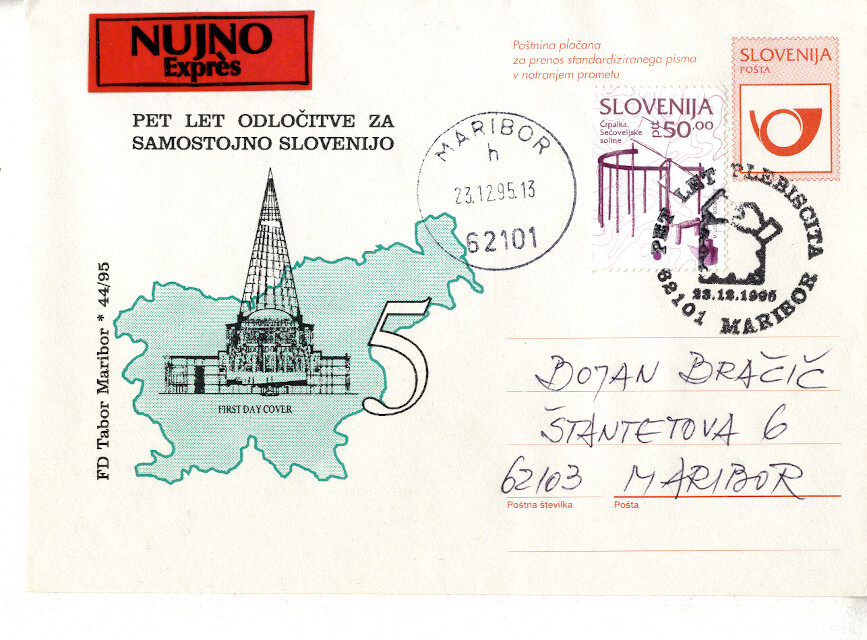 NUJNO
Exprès
PET LET ODLOČITVE ZA
SAMOSTOJNO SLOVENIJO
FD Tabor Maribor * 44/95
FIRST DAY COVER
5
Poštnina plačana
za prenos standardiziranega pisma
v notranjem prometu
SLOVENIJA
POŠTA
SLOVENIJA
Črpalka,
Sečoveljske
soline
SIT 50.00
MARIBOR
h
23.12.95.13
62101
PET LET PLEBISCITA
23.12.1995
62101 MARIBOR
BOJAN BRAČIČ
ŠTANTETOVA 6
62103 MARIBOR
Poštna številka
Pošta